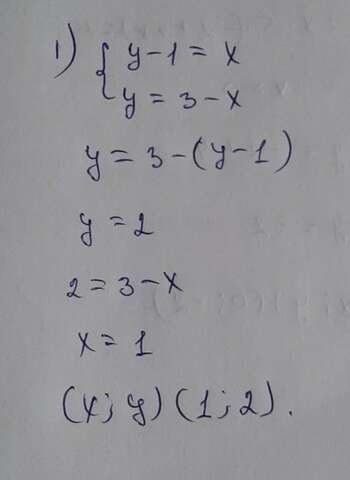 1) { y-1 = x
y = 3-x
y = 3-(y-1)
y = 2
2 = 3-x
x = 1
(x; y) (1; 2).